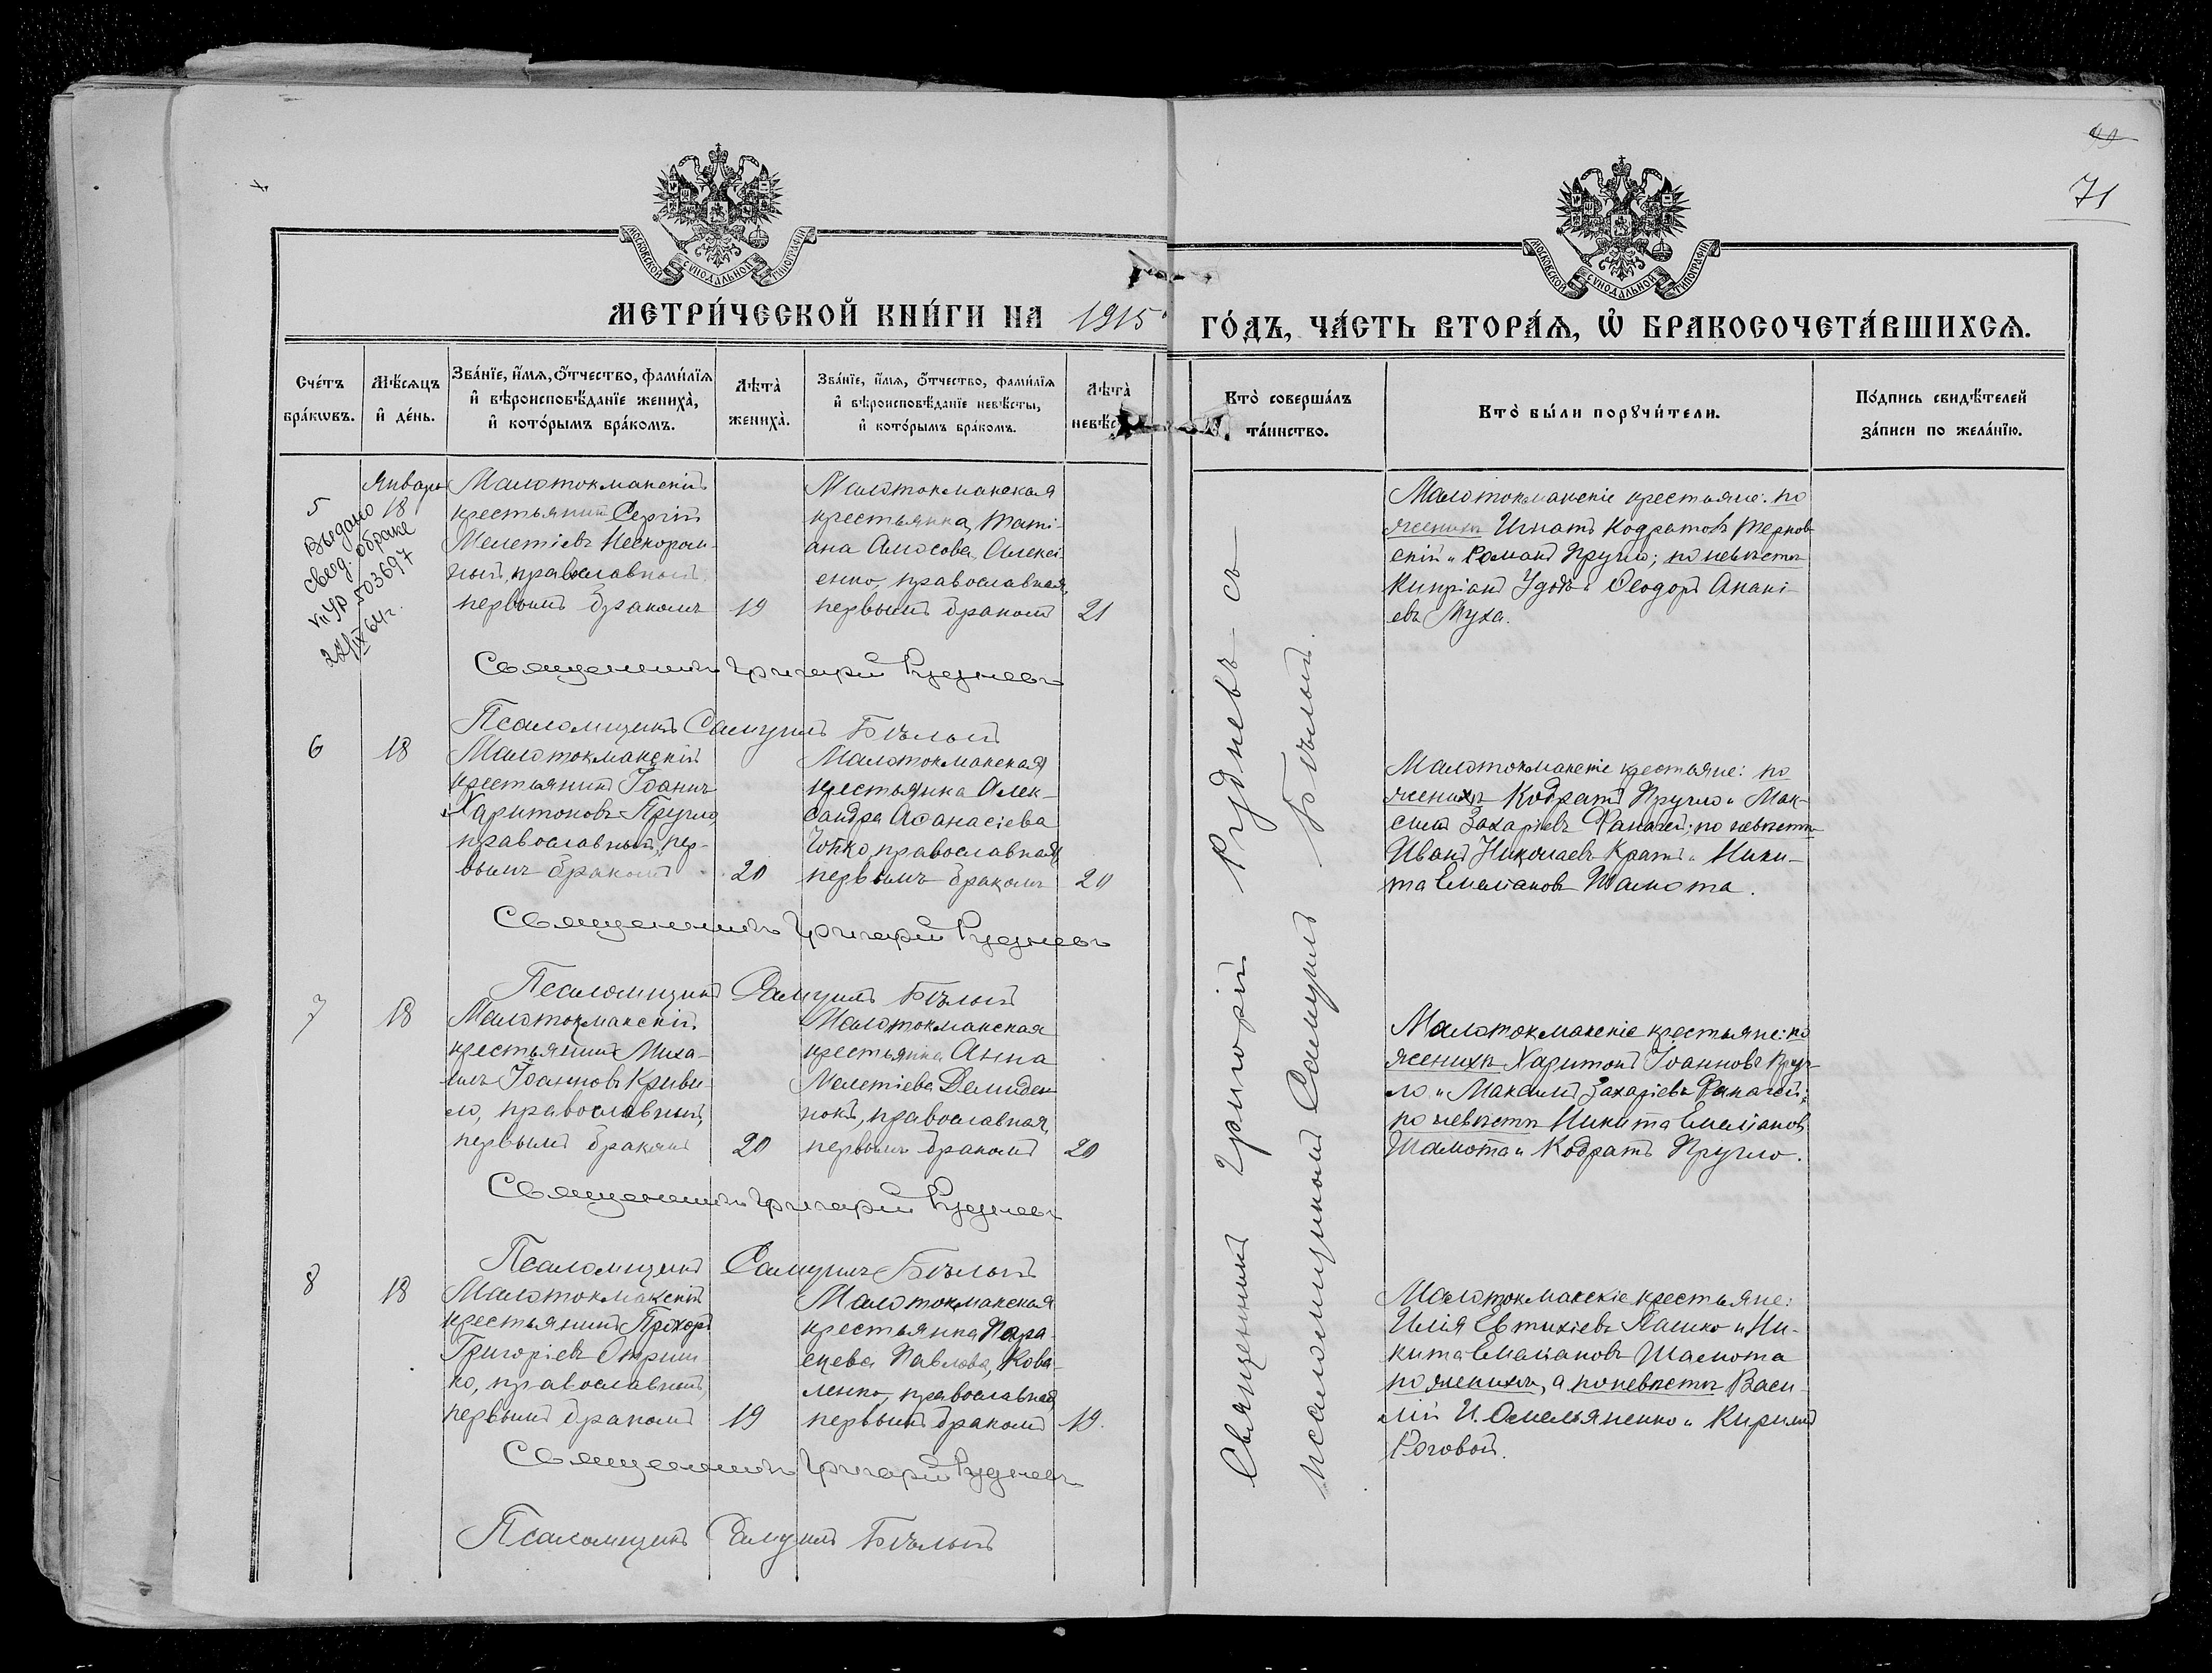 99
71
МОСКОВСКОЙ СУНОДАЛЬНОЙ ТИПОГРАФІИ
МОСКОВСКОЙ СУНОДАЛЬНОЙ ТИПОГРАФІИ
МЕТРИ́ЧЕСКОЙ КНИ́ГИ НА 1915 ГО́ДЪ, ЧА́СТЬ ВТОРА́Ѧ, Ѡ҆ БРАКОСОЧЕТА́ВШИХСѦ.
Сче́тъ бра́кѡвъ.
Мѣ́сѧцъ и҆ де́нь.
Зва́нїе, и҆́мѧ, ѻ҆́тчество, фами́лїѧ и҆ вѣроисповѣ́данїе жениха̀, и҆ кото́рымъ бра́комъ.
Лѣта̀ жениха̀.
Зва́нїе, и҆́мѧ, ѻ҆́тчество, фами́лїѧ и҆ вѣроисповѣ́данїе невѣ́сты, и҆ кото́рымъ бра́комъ.
Лѣта̀ невѣ́с
Кто̀ соверша́лъ та́инство.
Кто̀ бы́ли порꙋчи́тели.
По́дпись свидѣ́телей за́писи по жела́нїю.
5
Выдано
свед. о браке
VII УР 503697
IX 64 г.
Январь
18
Малотокмакскій
крестьянинъ Сергій
Мелетіевъ Нескором-
ный, православный,
первымъ бракомъ
19
Малотокмакская
крестьянка Тати-
ана Амосова Алексі-
енко, православная,
первымъ бракомъ
21
Малотокмакскіе крестьяне: по
женихѣ Игнатъ Кодратовъ Тернов-
скій и Романъ Пругло; по невѣстѣ
Кипріанъ Удодъ и Ѳеодоръ Анані-
евъ Муха.
Священникъ Григорій Рудневъ
Псаломщикъ Самуилъ Бѣлый
6
18
Малотокмакскій
крестьянинъ Іоаннъ
Харитоновъ Пругло,
православный, пер-
вымъ бракомъ
20
Малотокмакская
крестьянка Алек-
сандра Аѳанасіева
православная,
первымъ бракомъ
20
Малотокмакскіе крестьяне: по
женихѣ Кодратъ Пругло и Мак-
симъ Захаріевъ Панасей; по невѣстѣ
Иванъ Николаевъ Кратъ и Ники-
та Емеліановъ Шамота.
Священникъ Григорій Рудневъ
Псаломщикъ Самуилъ Бѣлый
7
18
Малотокмакскій
крестьянинъ Миха-
илъ Іоанновъ Криви-
ло, православный,
первымъ бракомъ
20
Малотокмакская
крестьянка Анна
Мелетіева Демиден-
ковъ, православная,
первымъ бракомъ
20
Малотокмакскіе крестьяне: по
женихѣ Харитонъ Іоанновъ Пруг-
ло и Максимъ Захаріевъ Панасей;
по невѣстѣ Никита Емеліановъ
Шамота и Кодратъ Пругло.
Священникъ Григорій Рудневъ
Псаломщикъ Самуилъ Бѣлый
8
18
Малотокмакскій
крестьянинъ Прохоръ
Григоріевъ Онрiш-
ко, православный,
первымъ бракомъ
19
Малотокмакская
крестьянка Пара-
скева Павлова Кова-
ленко, православная,
первымъ бракомъ
19.
Малотокмакскіе крестьяне:
Илія Евтихіевъ Пашко и Ни-
кита Емеліановъ Шамота
по женихѣ, а по невѣстѣ Васи-
лій И. Омельяненко и Кириллъ
Роговой.
Священникъ Григорій Рудневъ
Псаломщикъ Самуилъ Бѣлый
Священникъ Григорій Рудневъ съ
псаломщикомъ Самуилъ Бѣлый.